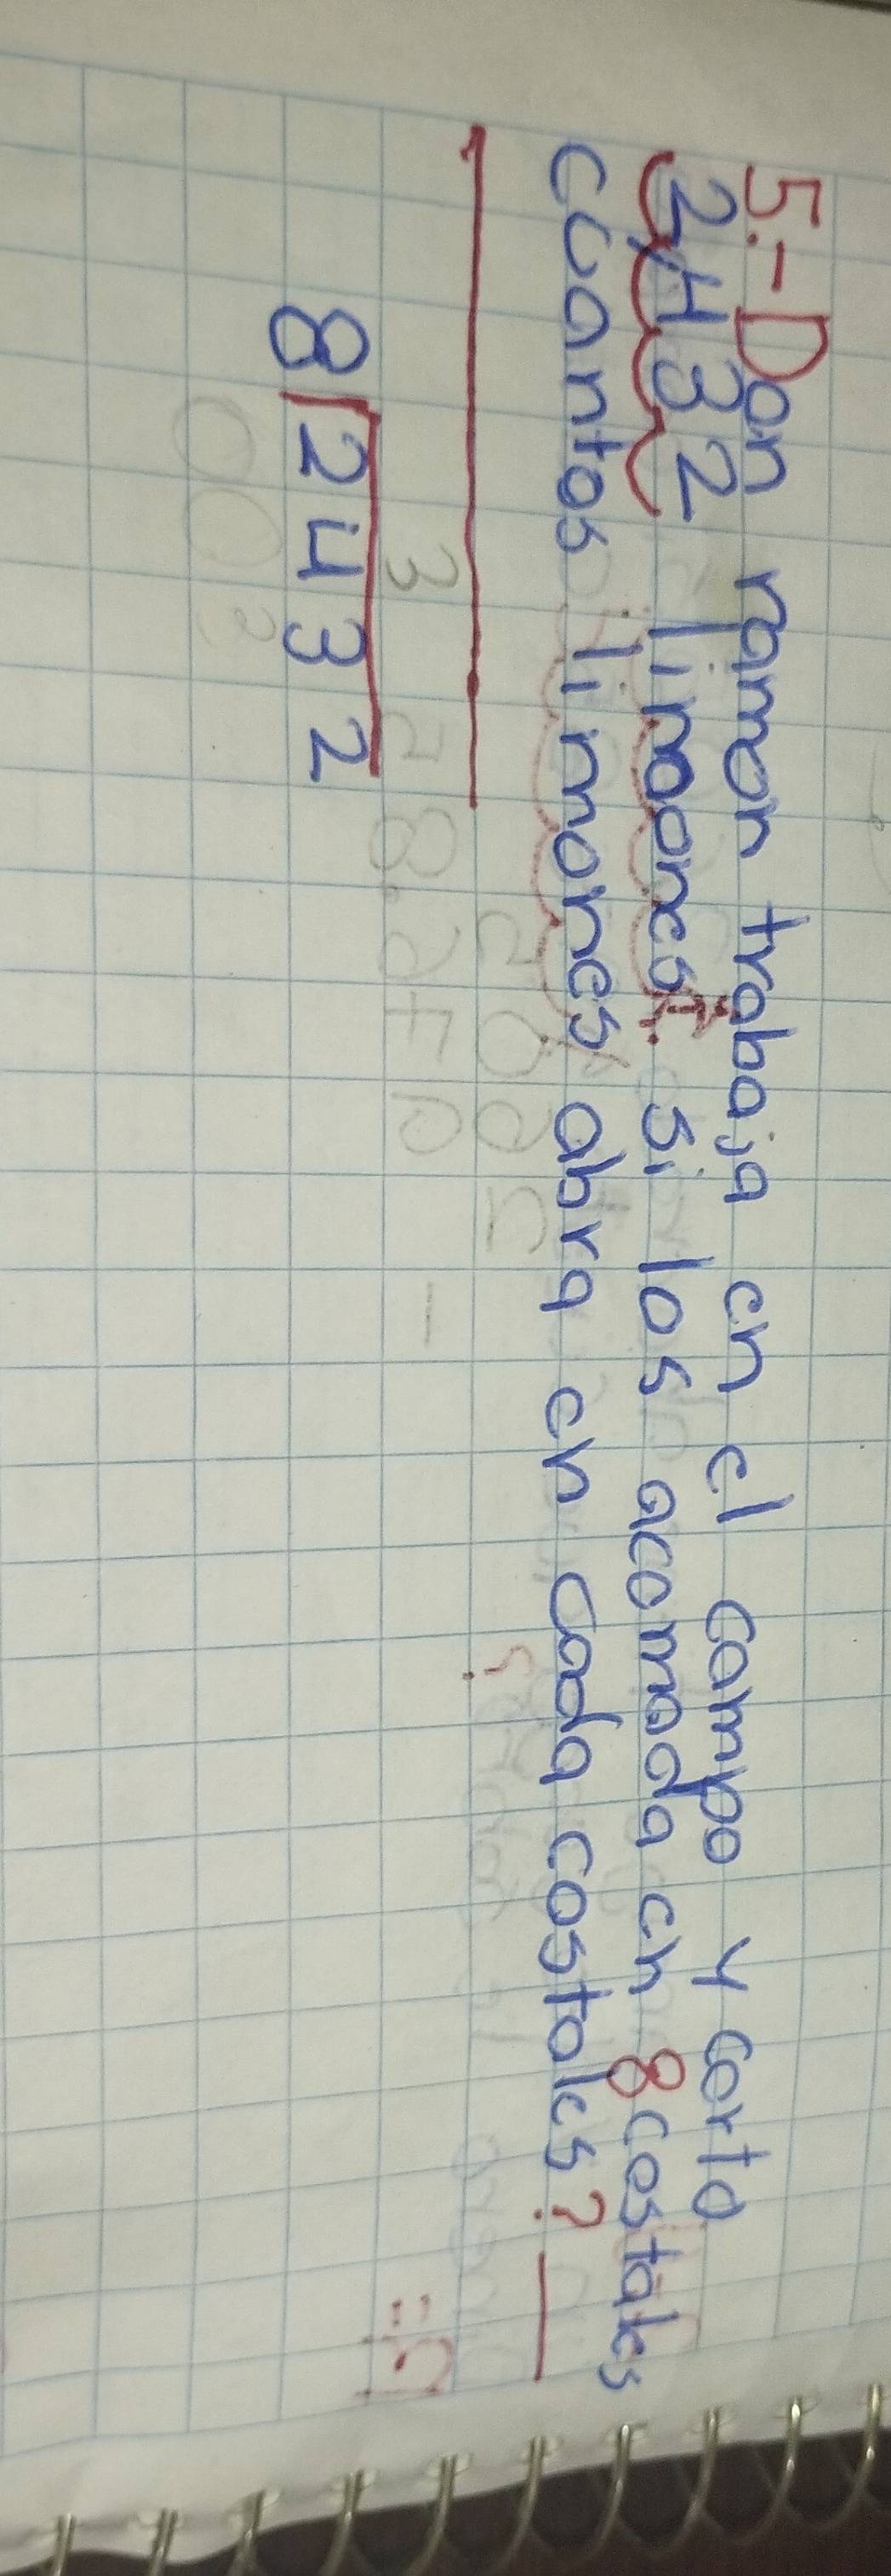 5.- Don ramon trabaja en el campo y corto
2,432 limones. si los acomoda en 8 costales
cuantos limones abra en cada costales?
3
8 2432
00